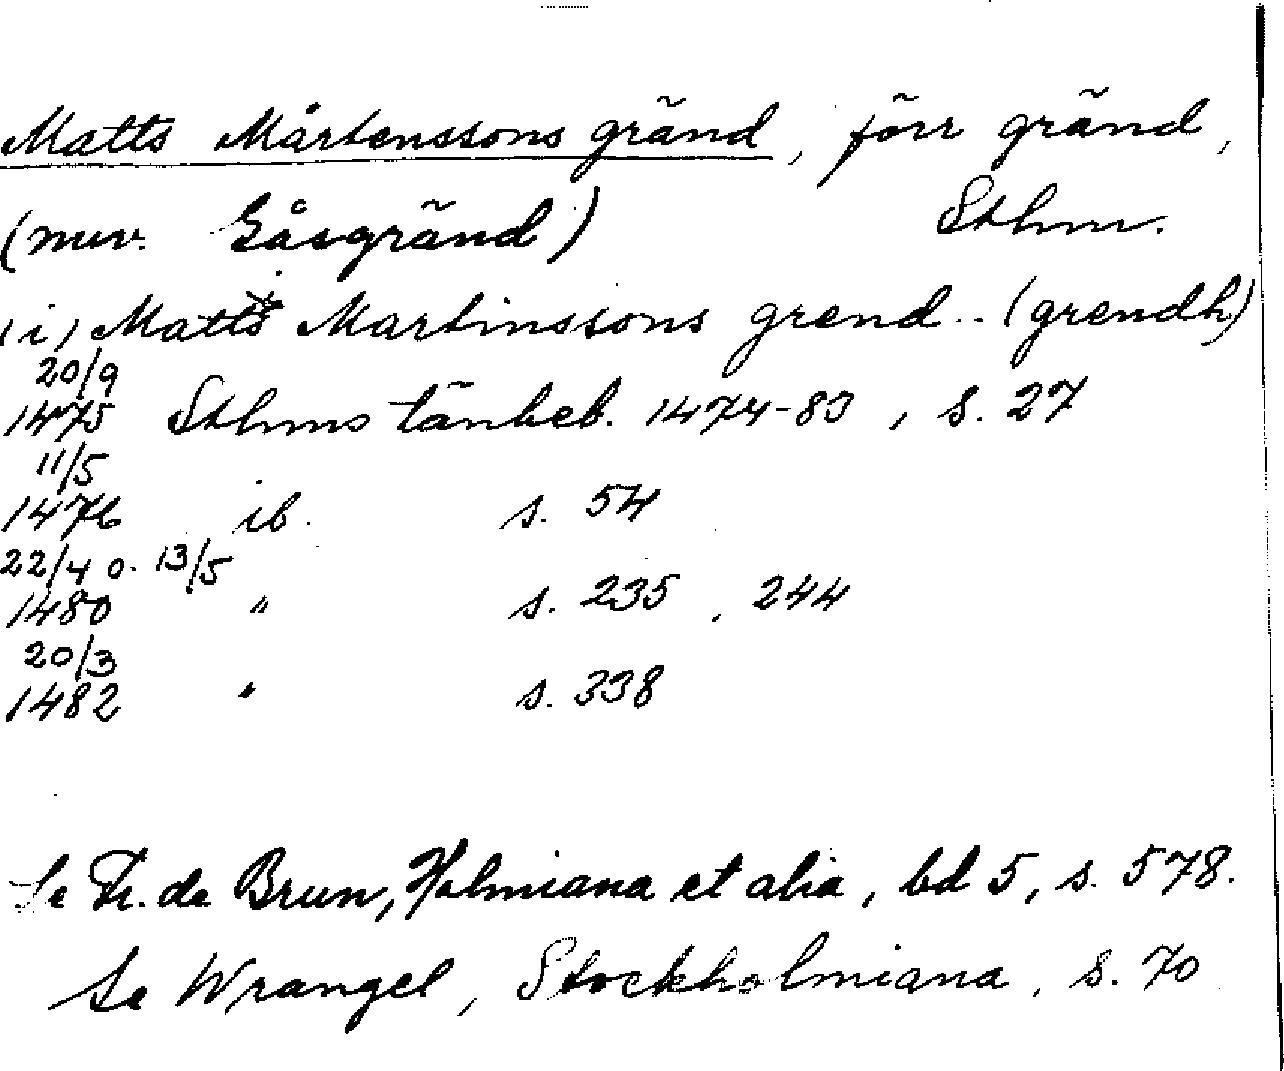 Matts Mårtenssons gränd, förr gränd,
(nuv. Gåsgränd) Sthm.
(i) Matts Martinssons grend .. (grendh)
20/9
1475 Sthms tänkeb. 1474-83, s. 27
11/5
1476 ib. s. 54
22/4 o. 13/5
1480 " s. 235, 244
20/3
1482 " s. 338
Se Fr. de Brun, Holmiana et alia, bd 5, s. 578.
Se Wrangel, Stockholmiana, s. 70